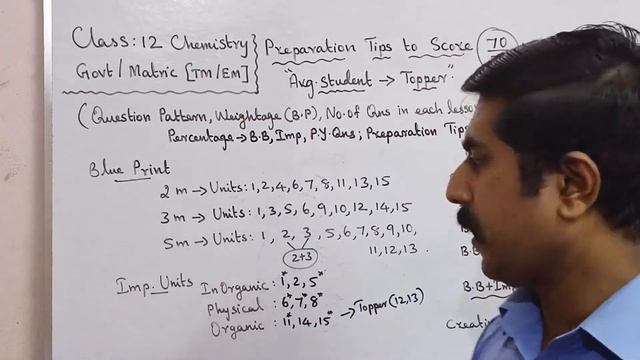 Class: 12 Chemistry
Govt/Matric [TM/EM]
Preparation Tips to Score 70
"Avg. Student → Topper"
(Question Pattern, Weightage (B.P), No. of Qns in each lesson
Percentage → B.B, Imp, P.Y. Qns; Preparation Tips
Blue Print
2m → Units: 1, 2, 4, 6, 7, 8, 11, 13, 15
3m → Units: 1, 3, 5, 6, 9, 10, 12, 14, 15
5m → Units: 1, 2, 3, 5, 6, 7, 8, 9, 10,
11, 12, 13.
2+3
Imp. Units
InOrganic: 1*, 2, 5*
Physical: 6*, 7*, 8*
Organic: 11*, 14, 15* → Topper (12, 13)
B.B
B.B
B.B+Im
Creati